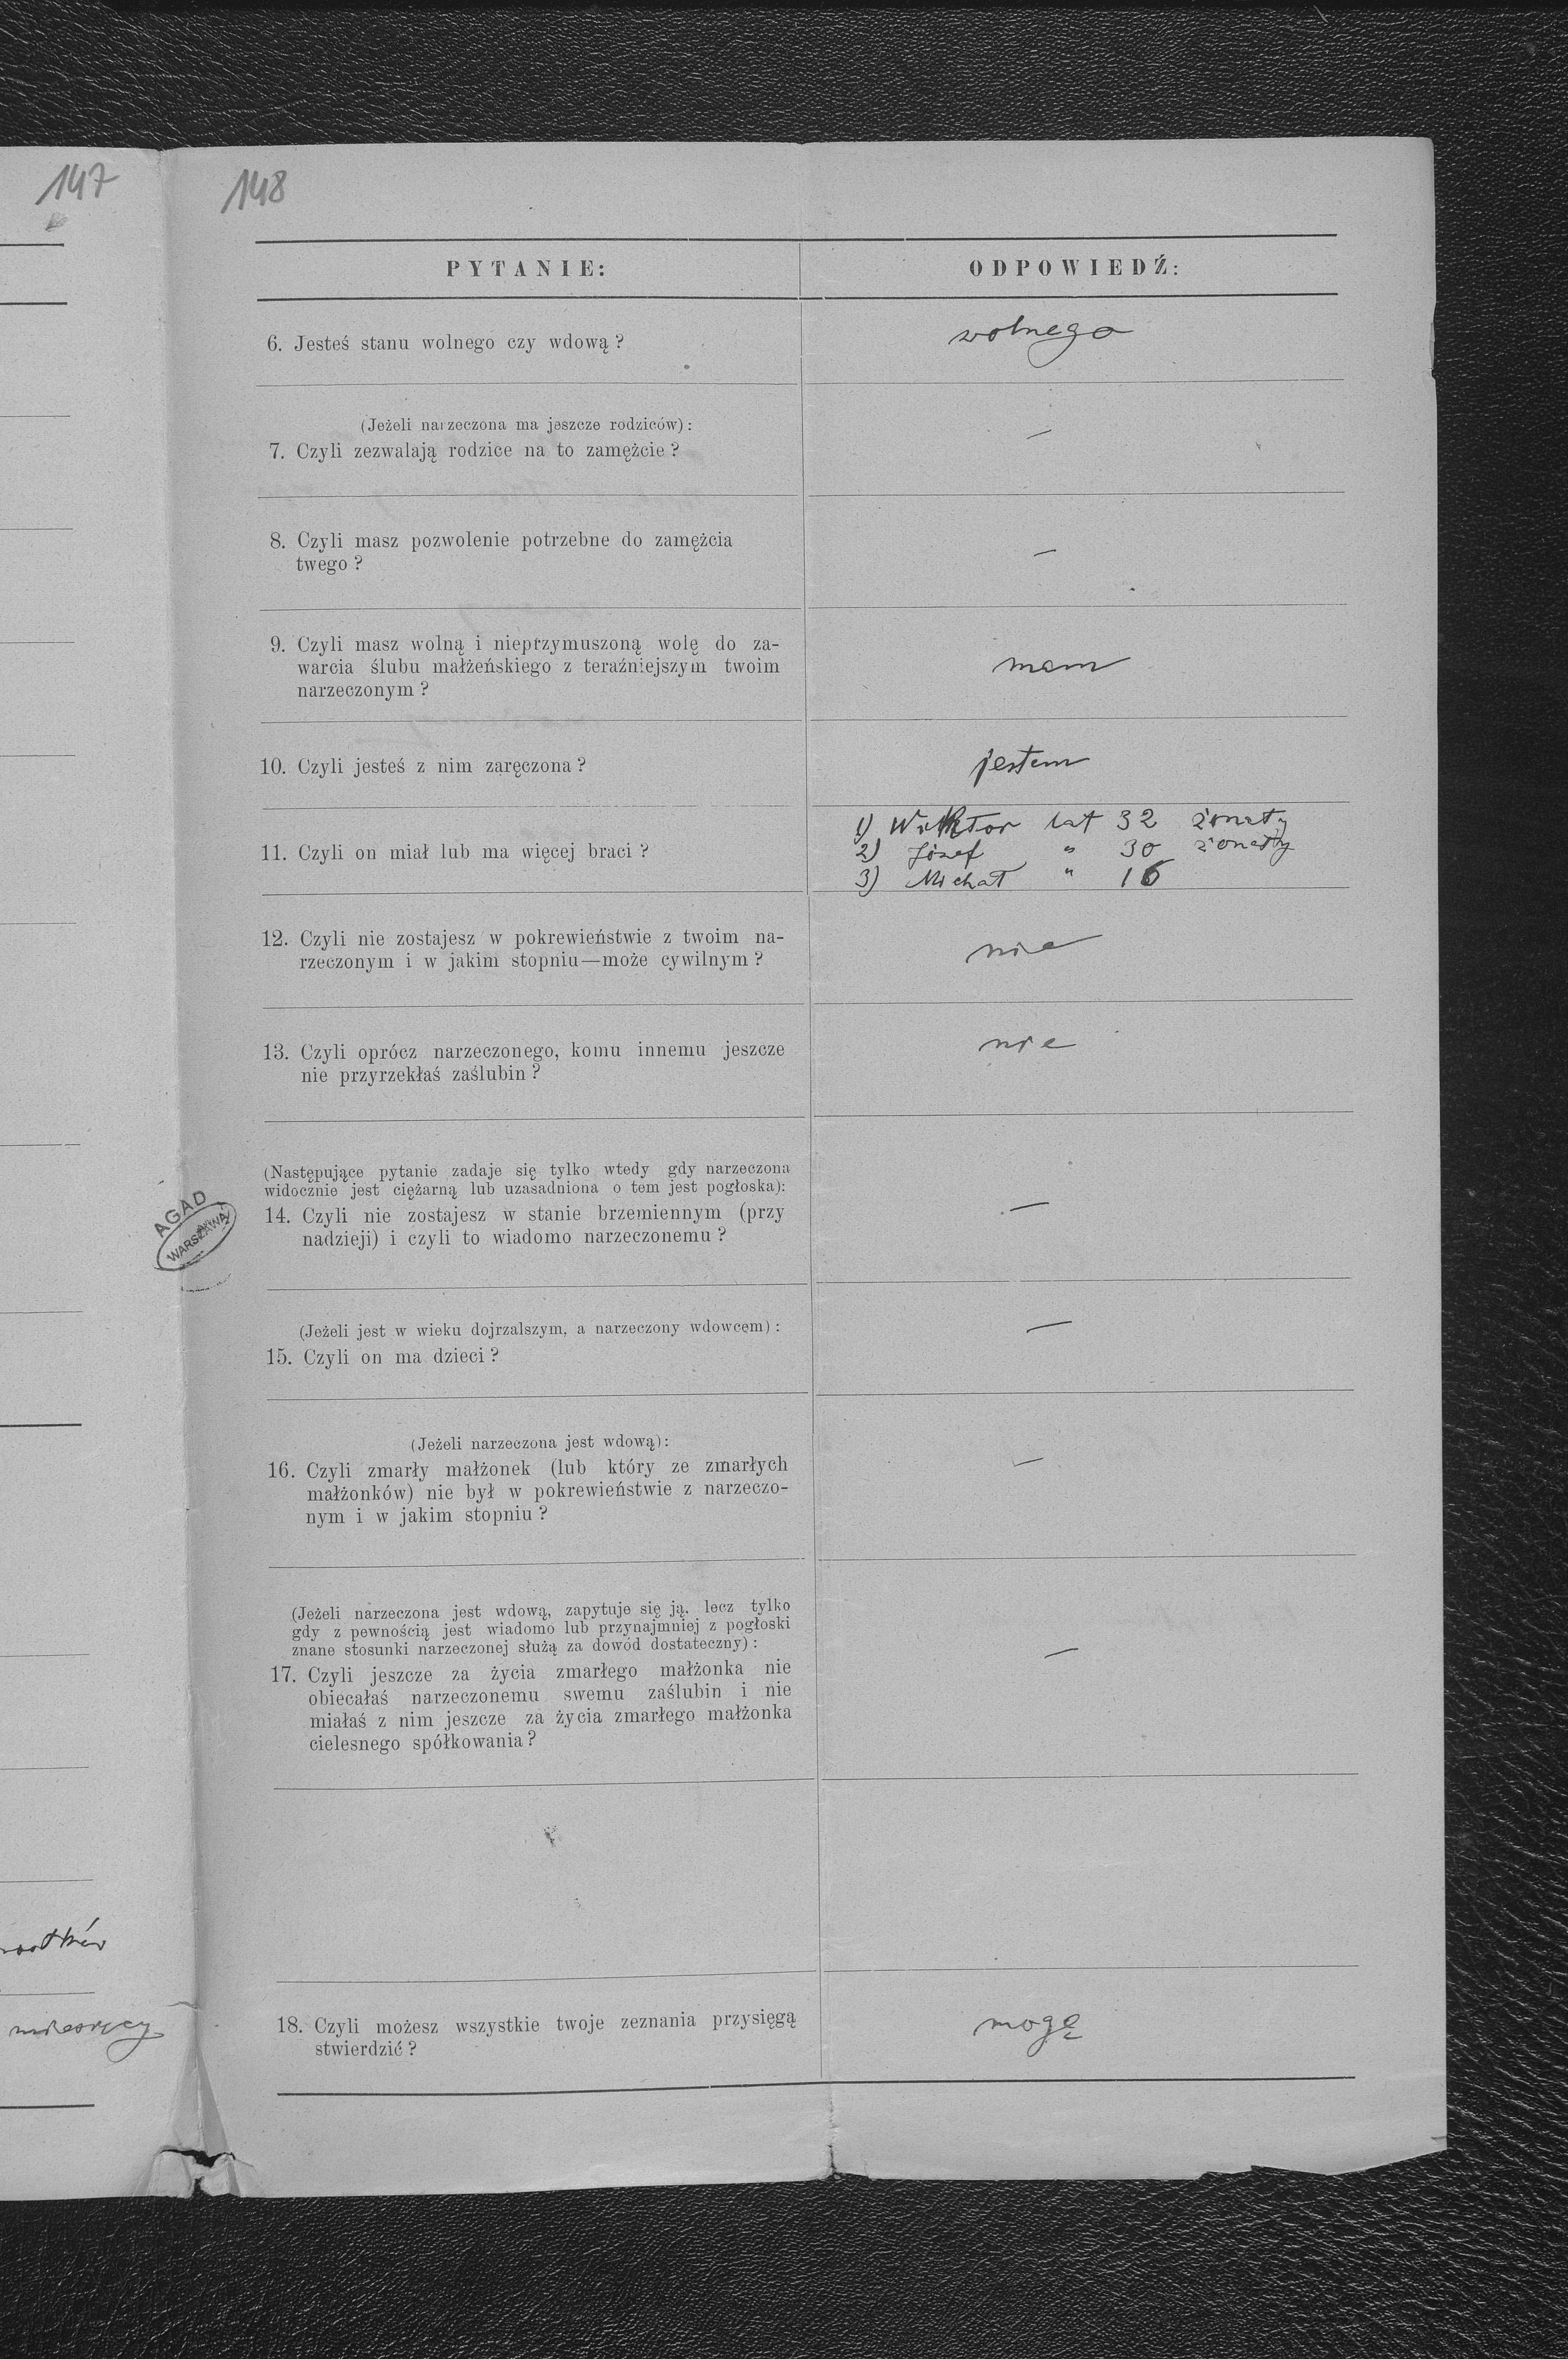 147
148
PYTANIE:
ODPOWIEDŹ:
6. Jesteś stanu wolnego czy wdową?
wolnego
(Jeżeli narzeczona ma jeszcze rodziców):
7. Czyli zezwalają rodzice na to zamężcie?
—
8. Czyli masz pozwolenie potrzebne do zamężcia
twego?
—
9. Czyli masz wolną i nieprzymuszoną wolę do za-
warcia ślubu małżeńskiego z teraźniejszym twoim
narzeczonym?
mam
10. Czyli jesteś z nim zaręczona?
jestem
11. Czyli on miał lub ma więcej braci?
1) Wiktor lat 32 żonaty
2) Józef " 30 żonaty
3) Michał " 16
12. Czyli nie zostajesz w pokrewieństwie z twoim na-
rzeczonym i w jakim stopniu—może cywilnym?
nie
13. Czyli oprócz narzeczonego, komu innemu jeszcze
nie przyrzekłaś zaślubin?
nie
(Następujące pytanie zadaje się tylko wtedy gdy narzeczona
widocznie jest ciężarną lub uzasadniona o tem jest pogłoska):
14. Czyli nie zostajesz w stanie brzemiennym (przy
nadzieji) i czyli to wiadomo narzeczonemu?
—
AGAD
WARSZAWA
(Jeżeli jest w wieku dojrzalszym, a narzeczony wdowcem):
15. Czyli on ma dzieci?
—
(Jeżeli narzeczona jest wdową):
16. Czyli zmarły małżonek (lub który ze zmarłych
małżonków) nie był w pokrewieństwie z narzeczo-
nym i w jakim stopniu?
—
(Jeżeli narzeczona jest wdową, zapytuje się ją, lecz tylko
gdy z pewnością jest wiadomo lub przynajmniej z pogłoski
znane stosunki narzeczonej służą za dowód dostateczny):
17. Czyli jeszcze za życia zmarłego małżonka nie
obiecałaś narzeczonemu swemu zaślubin i nie
miałaś z nim jeszcze za życia zmarłego małżonka
cielesnego spółkowania?
—
miesięcy
18. Czyli możesz wszystkie twoje zeznania przysięgą
stwierdzić?
mogę